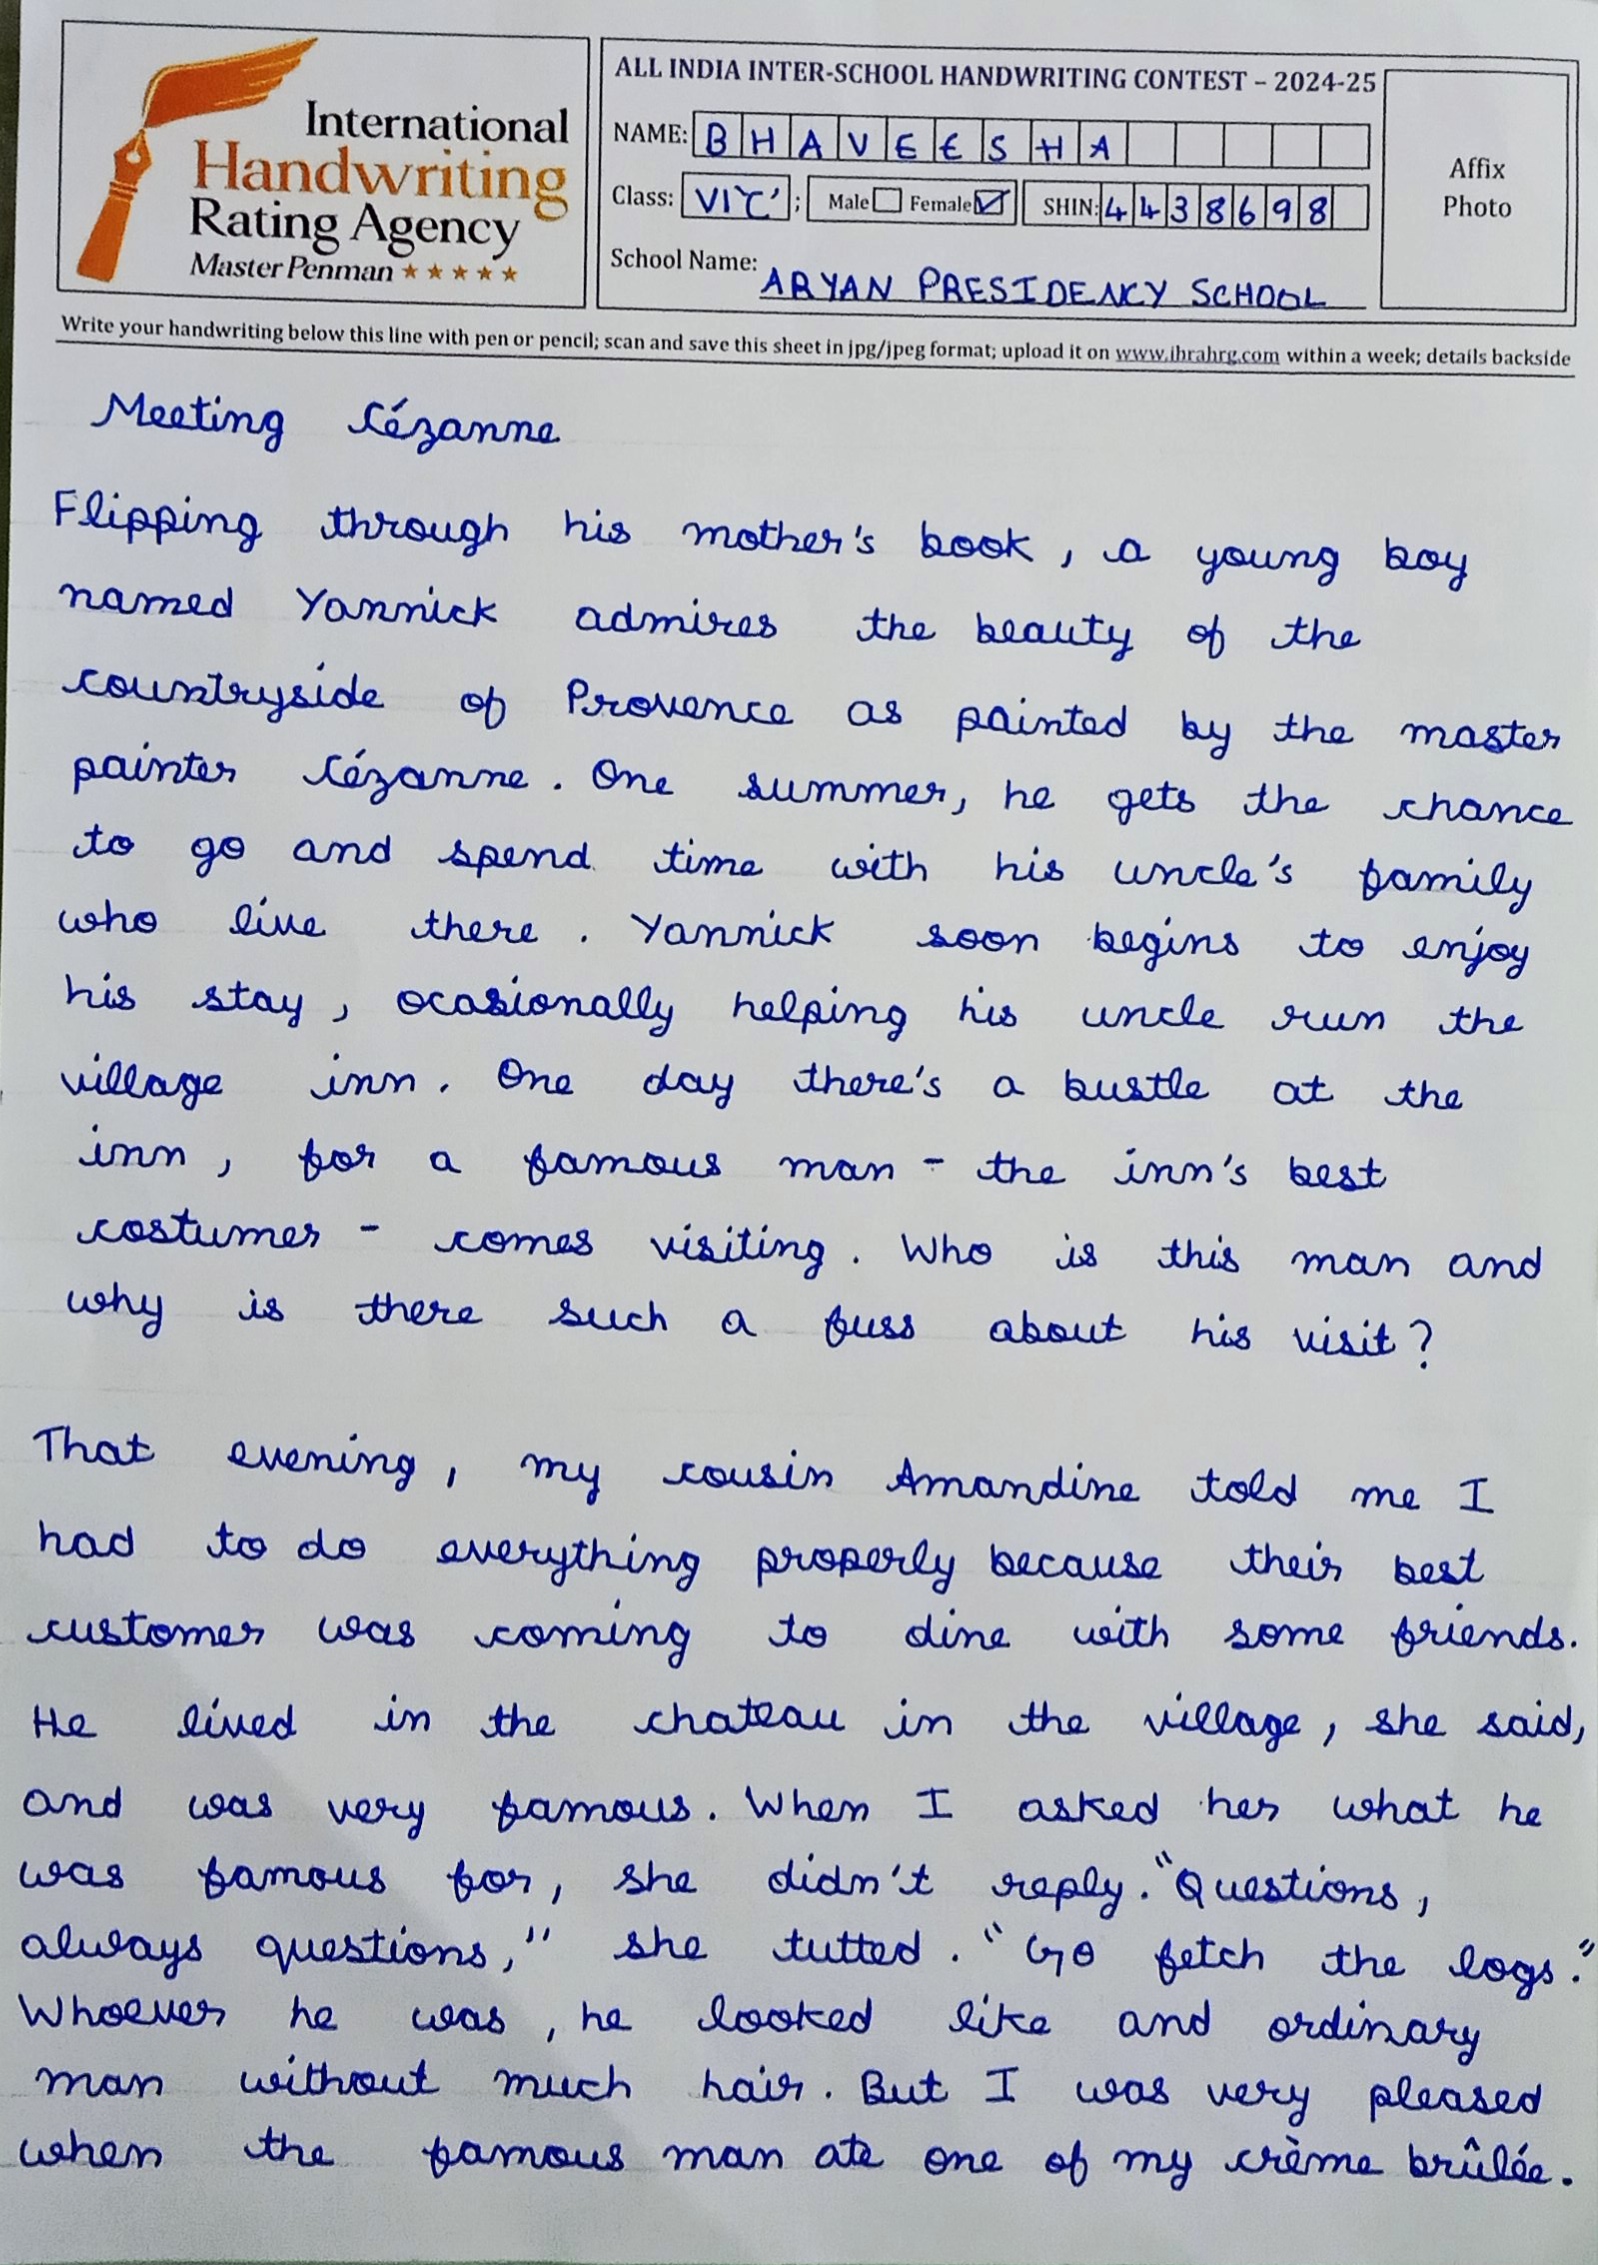 International
Handwriting
Rating Agency
Master Penman
ALL INDIA INTER-SCHOOL HANDWRITING CONTEST – 2024-25
NAME: BHAVEESHA
Class: VI 'C' ; Male Female SHIN: 4438698
School Name: ARYAN PRESIDENCY SCHOOL
Affix
Photo
Write your handwriting below this line with pen or pencil; scan and save this sheet in jpg/jpeg format; upload it on www.ihrahrg.com within a week; details backside
Meeting Cézanne
Flipping through his mother's book, a young boy
named Yannick admires the beauty of the
countryside of Provence as painted by the master
painter Cézanne. One summer, he gets the chance
to go and spend time with his uncle's family
who live there. Yannick soon begins to enjoy
his stay, ocasionally helping his uncle run the
village inn. One day there's a bustle at the
inn, for a famous man - the inn's best
costumer - comes visiting. Who is this man and
why is there such a fuss about his visit?
That evening, my cousin Amandine told me I
had to do everything properly because their best
customer was coming to dine with some friends.
He lived in the chateau in the village, she said,
and was very famous. When I asked her what he
was famous for, she didn't reply. "Questions,
always questions," she tutted. "Go fetch the logs."
Whoever he was, he looked like and ordinary
man without much hair. But I was very pleased
when the famous man ate one of my crème brûlée.